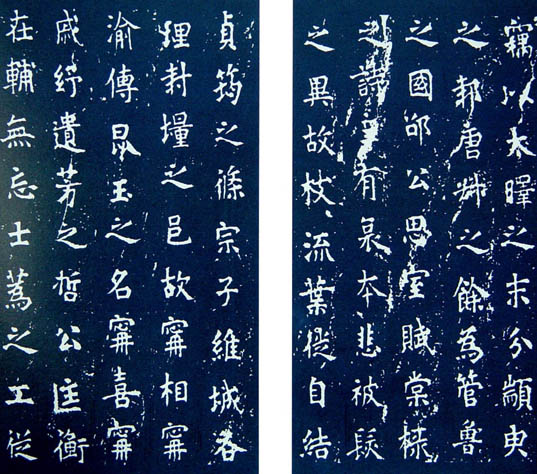 竊以太暉之末分顓臾
之邦唐叔之餘為管魯
之國邵公思室賦棠棣
之詩王有哀本悲被髮
之異故枝流葉從自結
貞筠之條宗子維城吝
狸封壃之邑故甯相甯
渝傳昆玉之名甯喜甯
戚紓遺芳之哲公匡衡
在輔無忘士蒍之工從